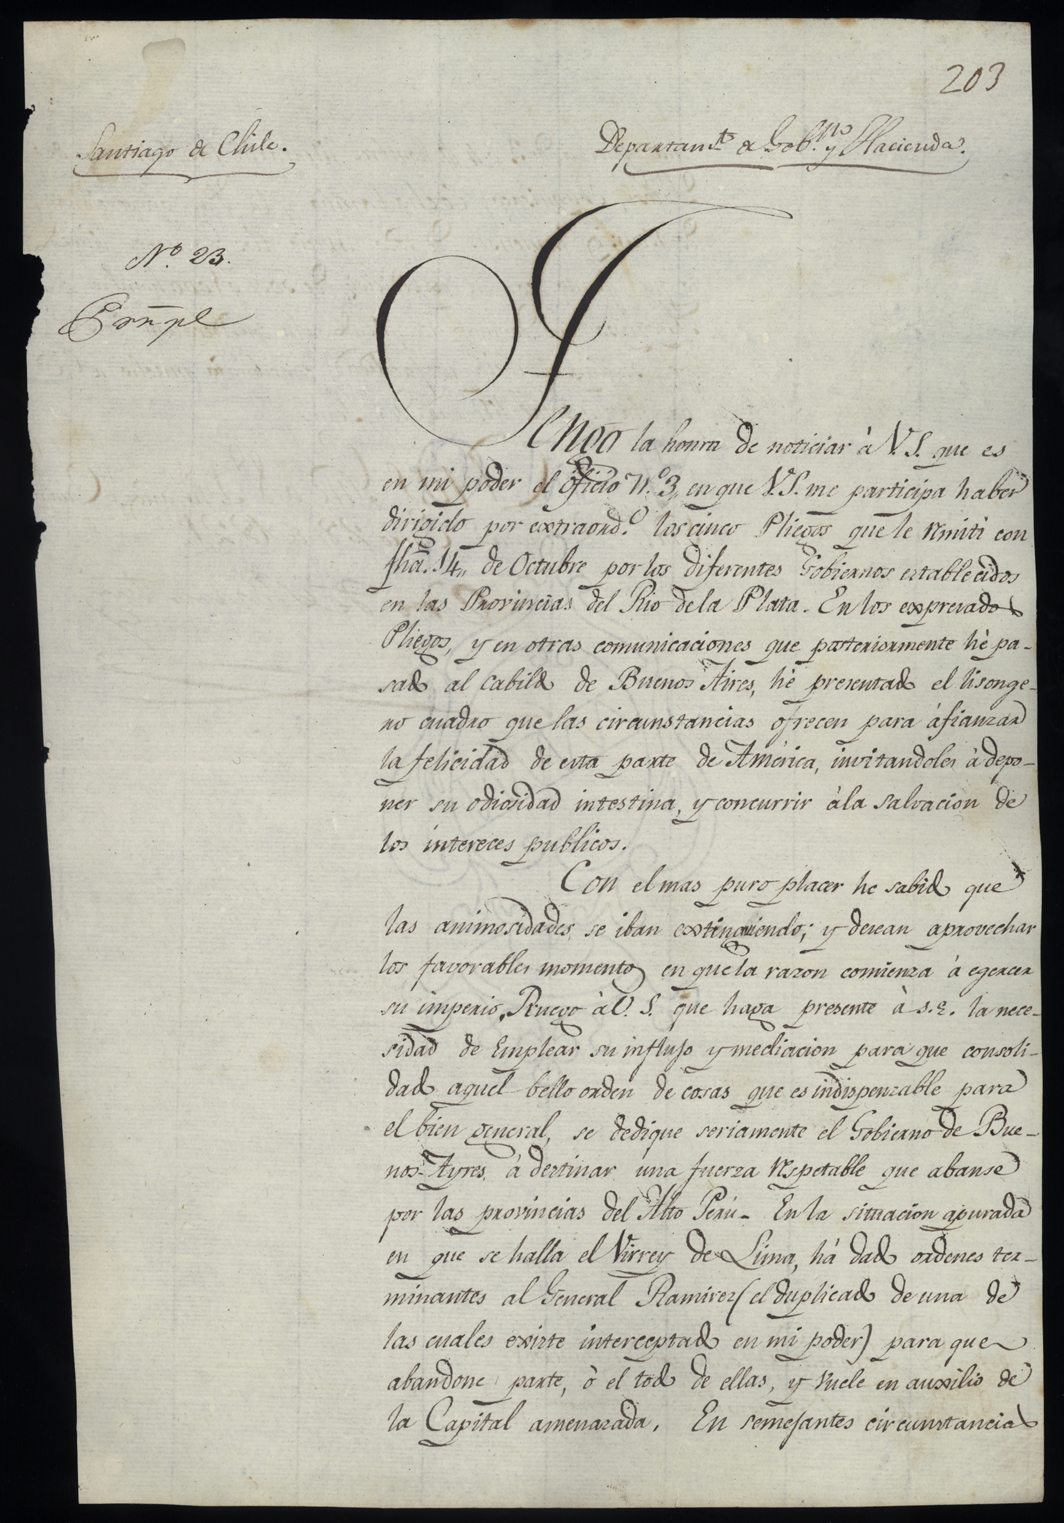 203
Santiago de Chile.
Departam.to de Gob.no y Hacienda.
N.o 23.
Tengo la honra de noticiar à V.S. que es
en mi poder el oficio n.o 3, en que V.S. me participa haber
dirigido por extraord.o los cinco Pliegos que le remiti con
fha. 14,, de Octubre por los diferentes Gobiernos establecidos
en las Provincias del Rio de la Plata. En los expresados
Pliegos, y en otras comunicaciones que posteriormente hè pa-
sado al Cabildo de Buenos Aires, hè presentado el lisonge-
ro cuadro que las circunstancias ofrecen para àfianzar
la felicidad de esta parte de Amèrica, invitandoles à depo-
ner su odiosidad intestina, y concurrir àla salvacion de
los intereces publicos.
Con el mas puro placer he sabido que
las animosidades se iban extinguiendo; y desean aprovechar
los favorables momentos en que la razon comienza à egercer
su imperio. Ruego à V.S. que haga presente à S.E. la nece-
sidad de emplear su influjo y mediacion para que consoli-
dado aquel bello orden de cosas que es indispenzable para
el bien general, se dedique seriamente el Gobierno de Bue-
nos-Ayres à destinar una fuerza respetable que abanse
por las provincias del Alto Perú- En la situacion apurada
en que se halla el Virrey de Lima, hà dado ordenes ter-
minantes al General Ramirez (el duplicado de una de
las cuales existe interceptado en mi poder) para que
abandone parte, ò el todo de ellas, y vuele en auxilio de
la Capital amenazada. En semejantes circunstancias